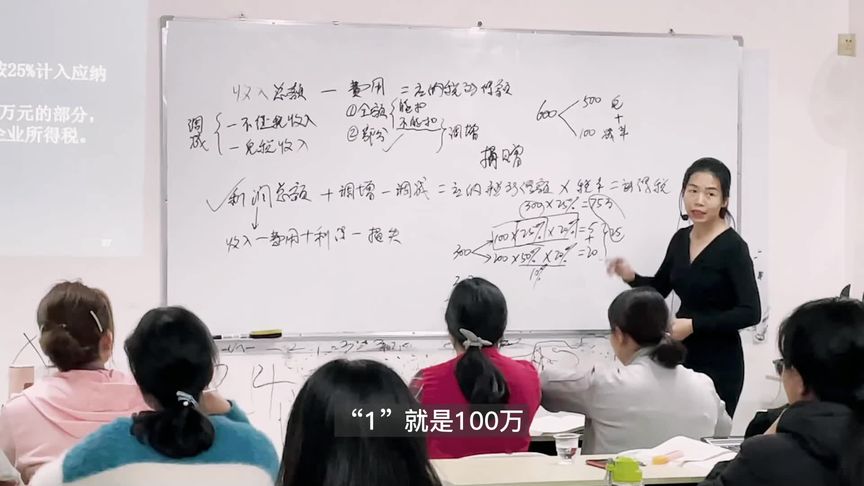 按25%计入应纳
万元的部分,
企业所得税。
收入总额 — 费用 = 应纳税所得额
调减
—不征税收入
—免税收入
①全额
能扣
不能扣
②部分
调增
捐赠
600
500 免
+
100 减半
利润总额 + 调增 — 调减 = 应纳税所得额 × 税率 = 所得税
收入 — 费用 + 利得 — 损失
(300)×25% = 75
300
100×25%×20% = 5
+
200×50%×20% = 20
25
10%
“1”就是100万